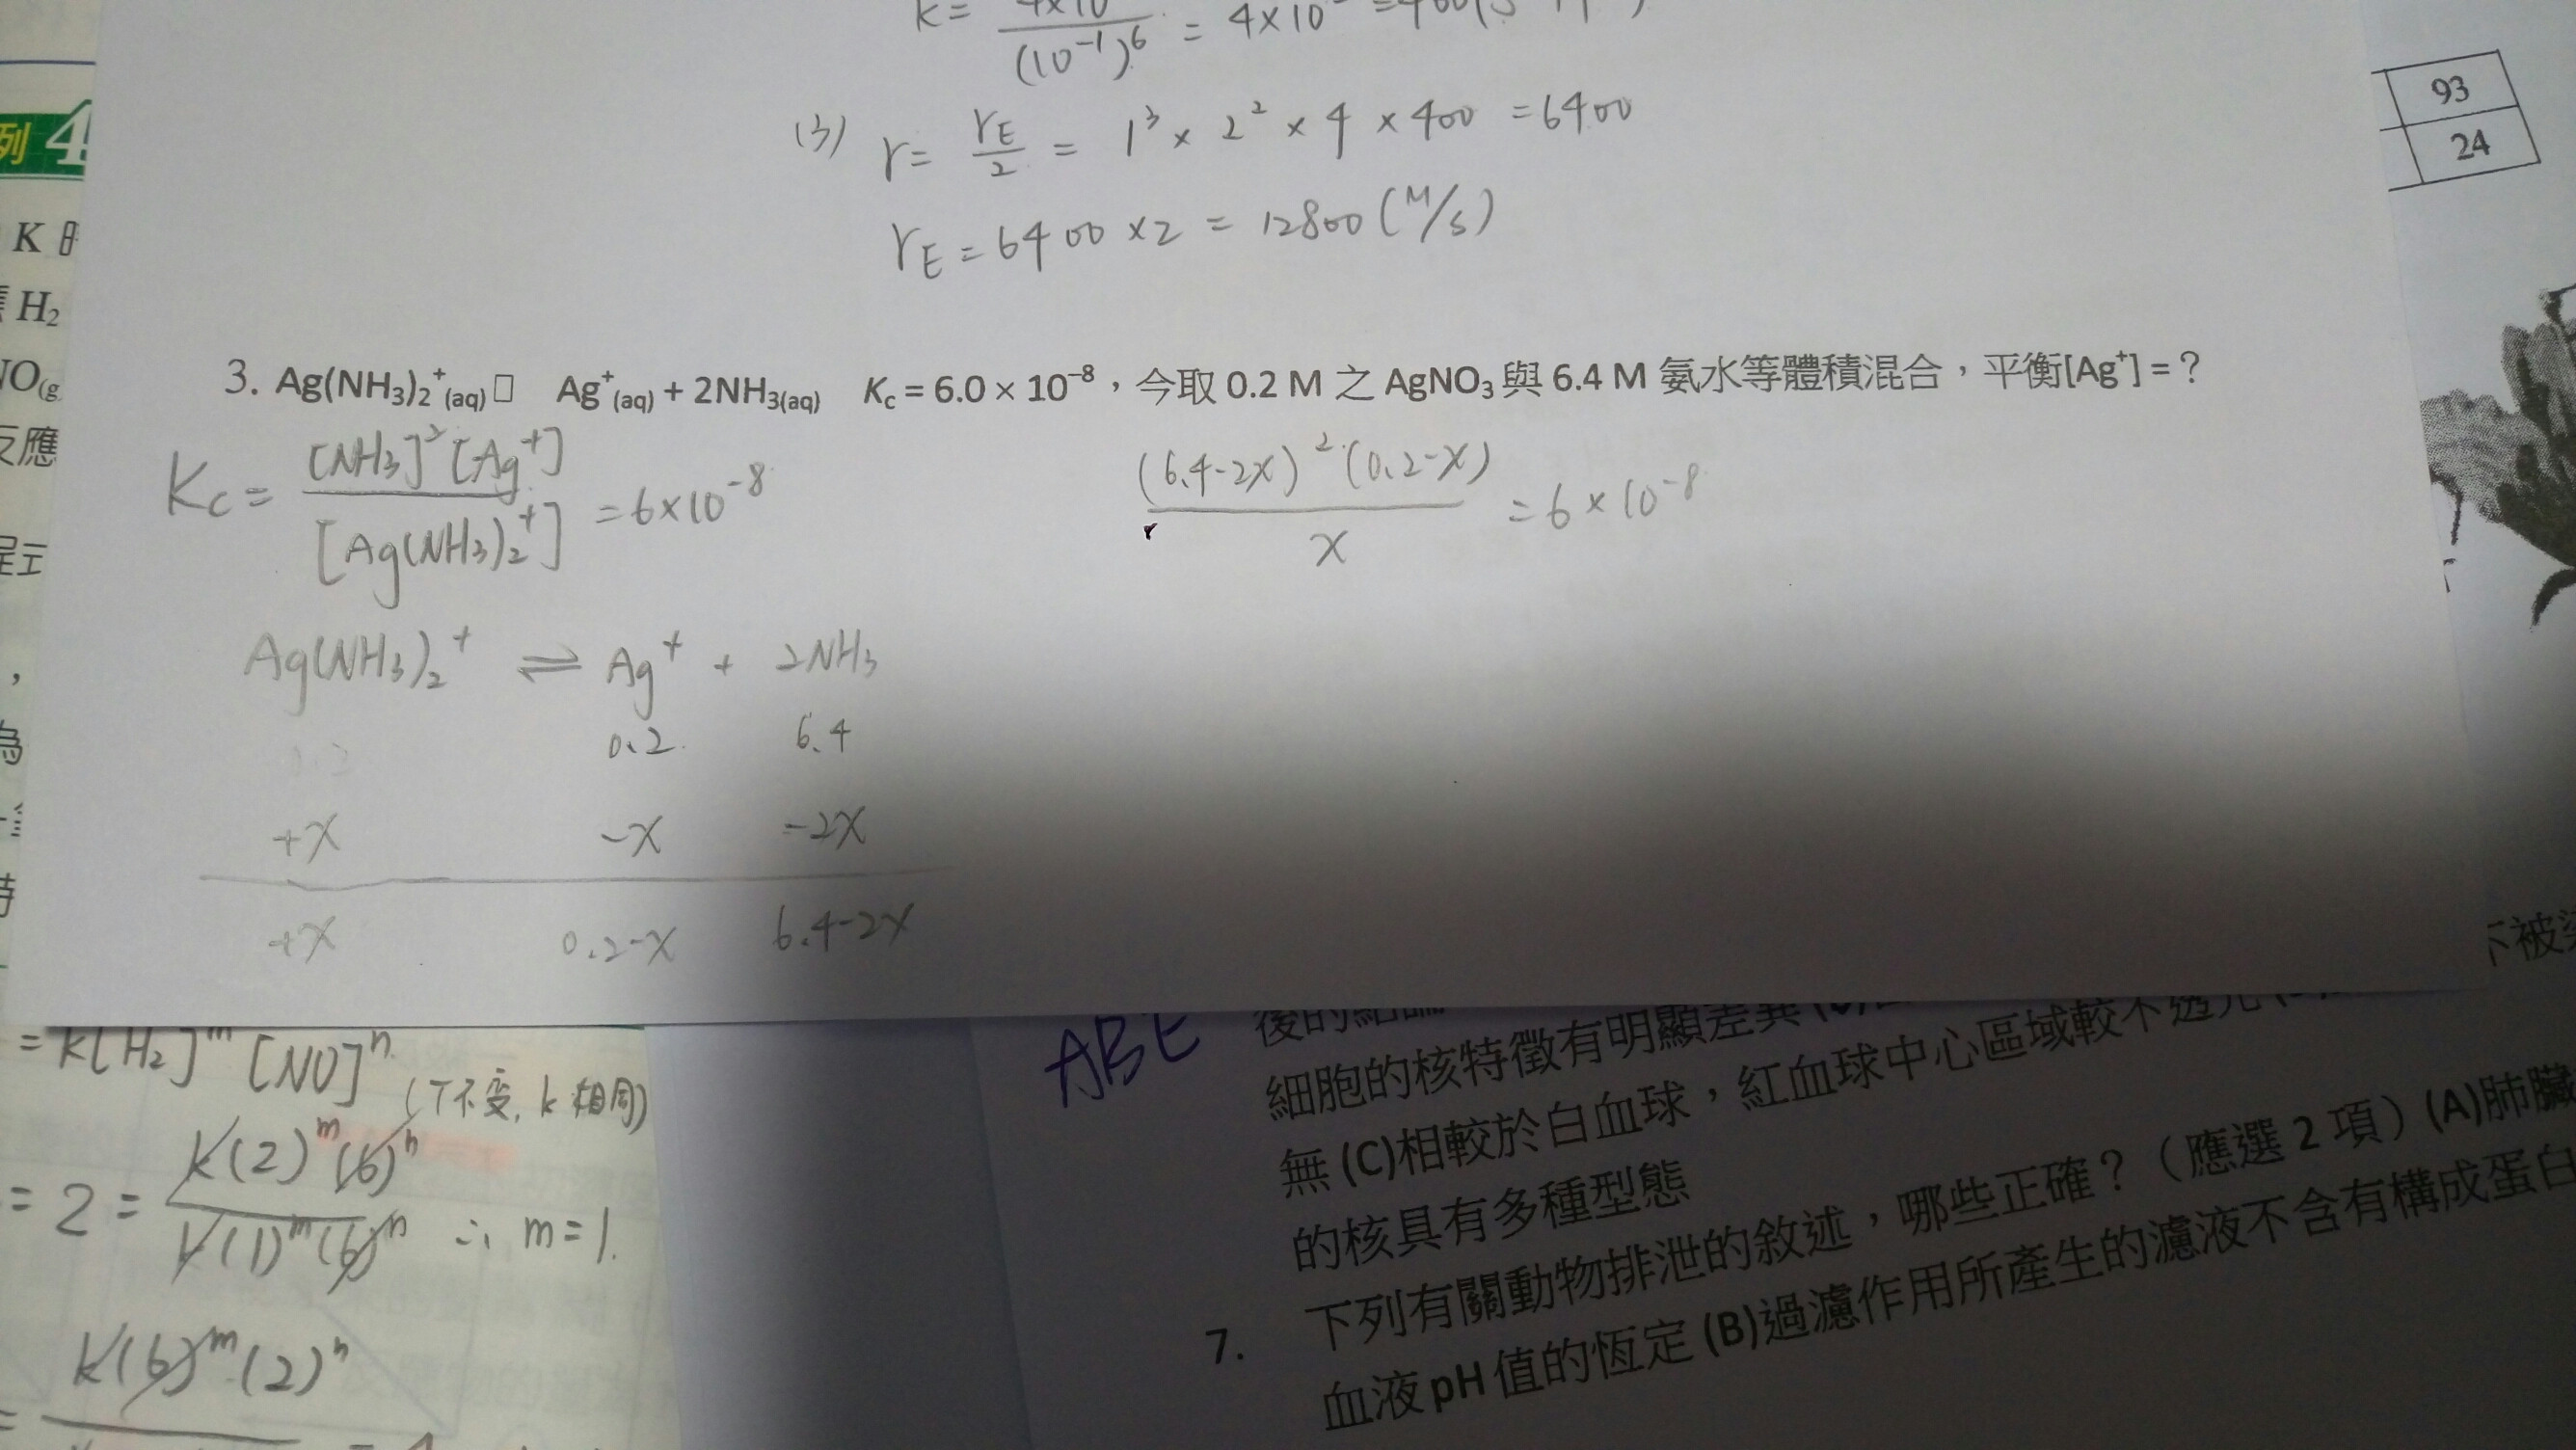 (10⁻¹)⁶
(3) r = r_E/2 = 1³ × 2² × 4 × 400 = 6400
r_E = 6400 × 2 = 12800 (M/s)
93
24
列 4
K 時
H₂
NO(g
反應
3. Ag(NH₃)₂⁺(aq)□ Ag⁺(aq) + 2NH₃(aq) Kc = 6.0 × 10⁻⁸，今取 0.2 M 之 AgNO₃ 與 6.4 M 氨水等體積混合，平衡[Ag⁺] = ?
Kc = [NH₃]²[Ag⁺] / [Ag(NH₃)₂⁺] = 6×10⁻⁸
(6.4-2x)²(0.2-x) / x = 6×10⁻⁸
Ag(NH₃)₂⁺ ⇌ Ag⁺ + 2NH₃
0.2 6.4
+x -x -2x
+x 0.2-x 6.4-2x
= k[H₂]ᵐ [NO]ⁿ (T不変, k 相同)
= 2 = k(2)ᵐ(6)ⁿ / k(1)ᵐ(6)ⁿ ∴ m=1.
k(6)ᵐ(2)ⁿ
ABE
細胞的核特徵有明顯差異
無 (C)相較於白血球，紅血球中心區域較不透光
的核具有多種型態
7. 下列有關動物排泄的敘述，哪些正確？（應選 2 項）(A)肺臟
血液 pH 值的恆定 (B)過濾作用所產生的濾液不含有構成蛋白